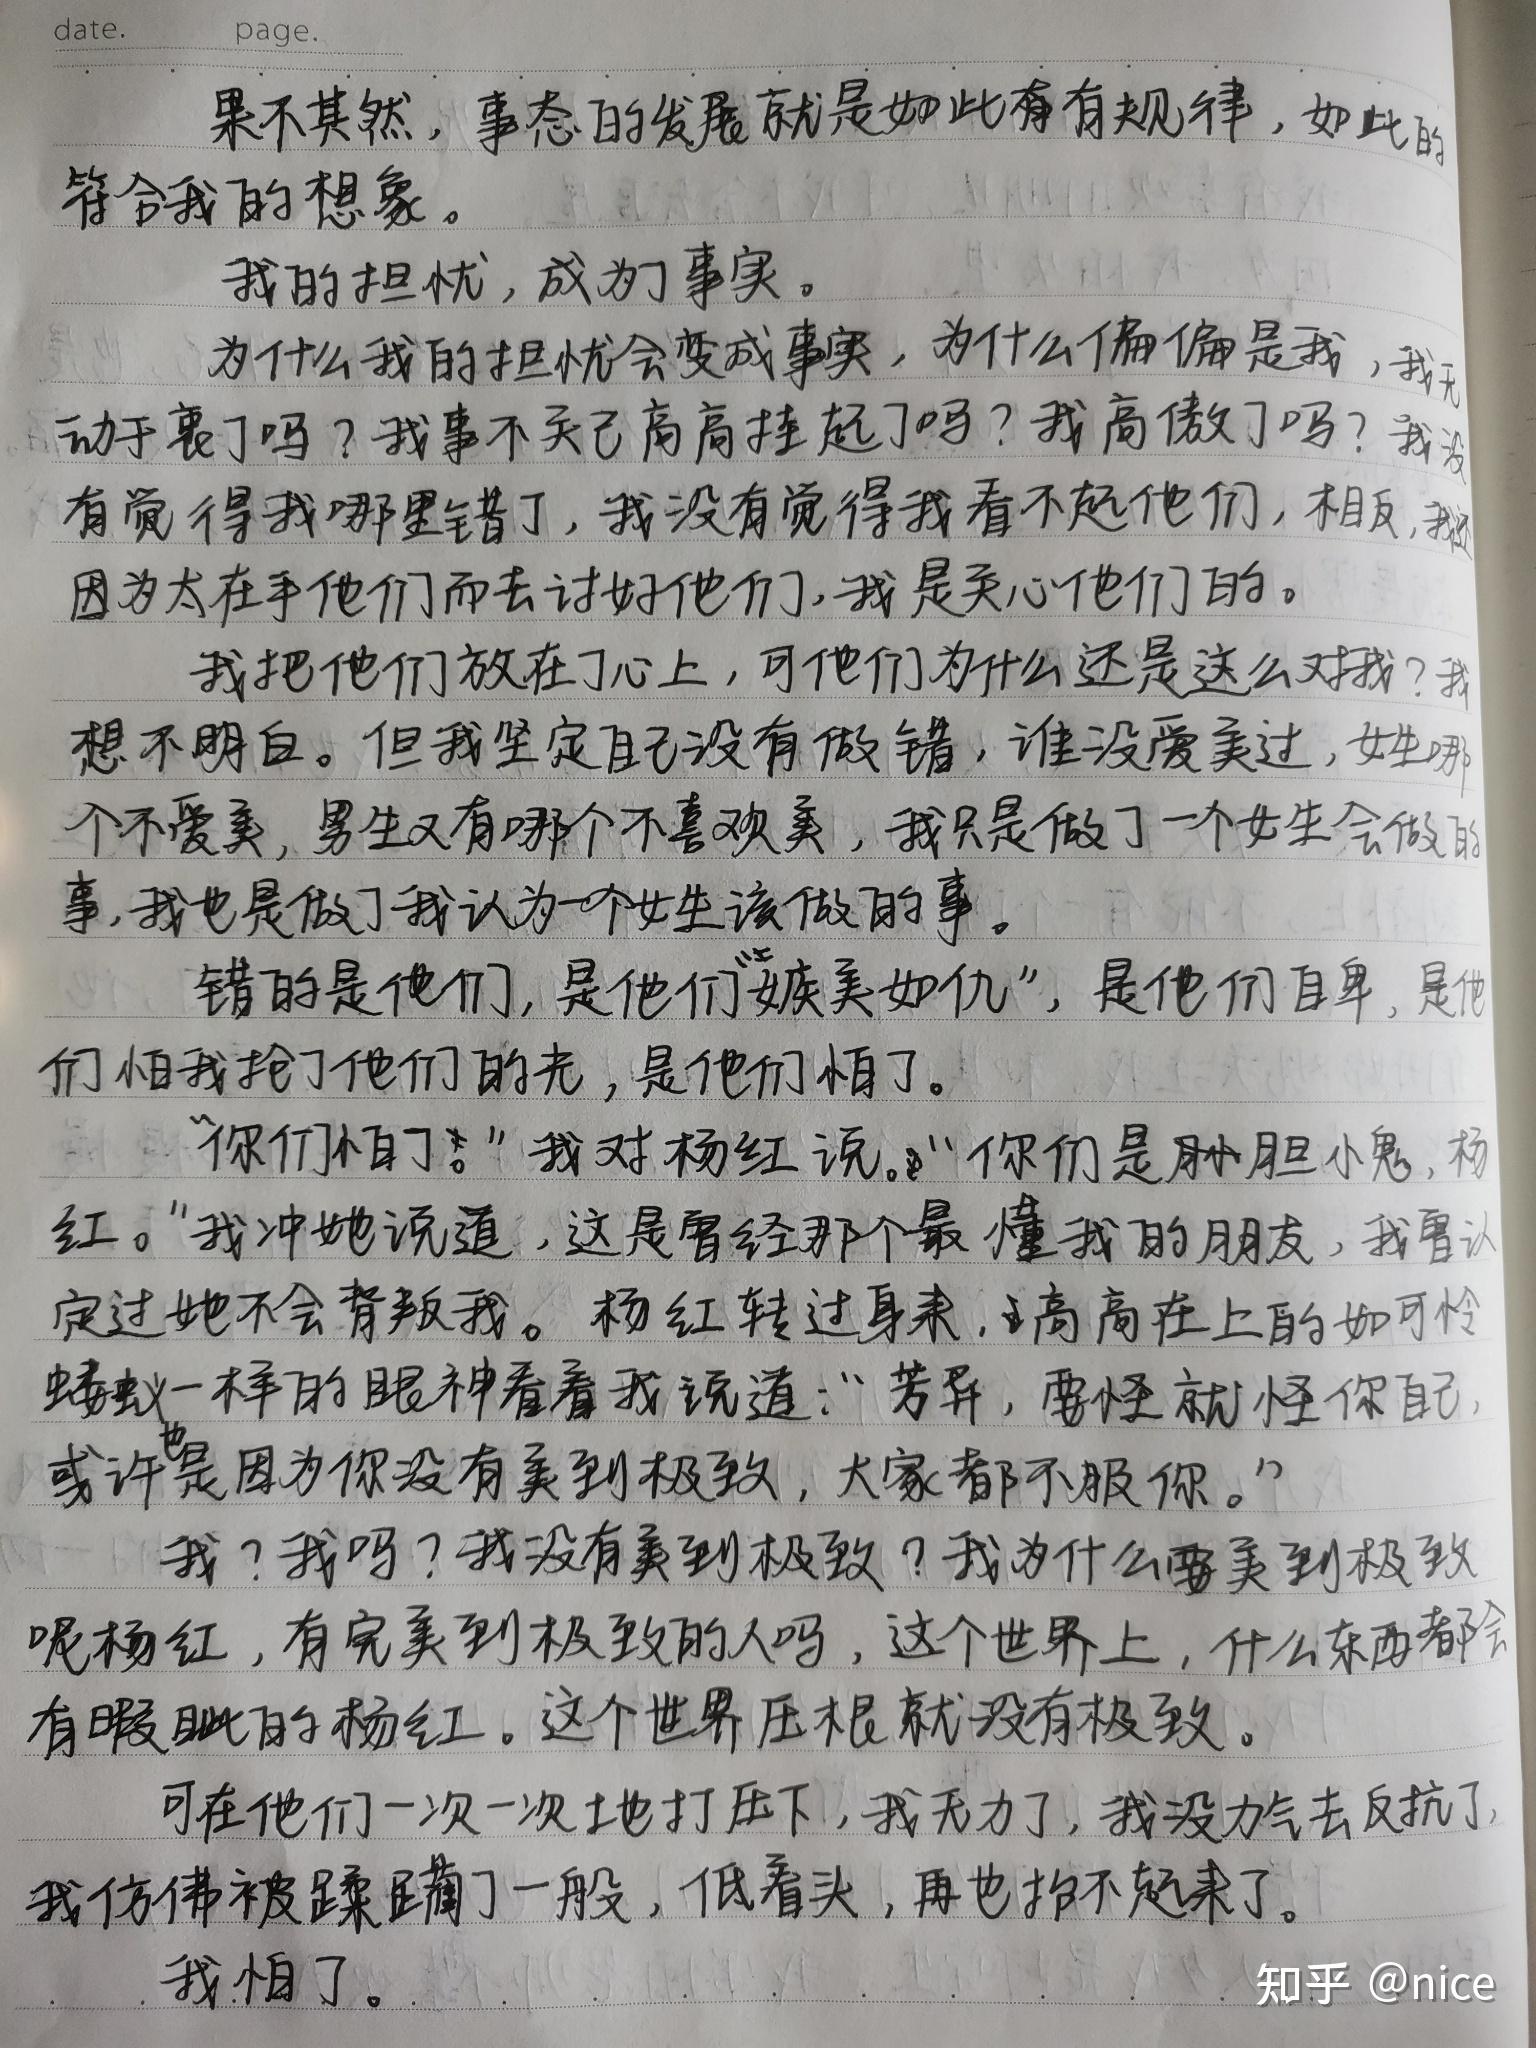 date. page.
果不其然，事态的发展就是如此有有规律，如此的
符合我的想象。
我的担忧，成为了事实。
为什么我的担忧会变成事实，为什么偏偏是我，我无
动于衷了吗？我事不关己高高挂起了吗？我高傲了吗？我没
有觉得我哪里错了，我没有觉得我看不起他们，相反，我还
因为太在乎他们而去讨好他们，我是关心他们的。
我把他们放在了心上，可他们为什么还是这么对我？我
想不明白。但我坚定自己没有做错，谁没爱美过，女生哪
个不爱美，男生又有哪个不喜欢美，我只是做了一个女生会做的
事，我也是做了我认为一个女生该做的事。
错的是他们，是他们“嫉美如仇”，是他们自卑，是他
们怕我抢了他们的光，是他们怕了。
“你们怕了！”我对杨红说。“你们是胆小鬼，杨
红。”我冲她说道，这是曾经那个最懂我的朋友，我曾认
定过她不会背叛我。杨红转过身来，高高在上的如可怜
蝼蚁一样的眼神看着我说道：“芳昇，要怪就怪你自己，
或许也是因为你没有美到极致，大家都不服你。”
我？我吗？我没有美到极致？我为什么要美到极致
呢杨红，有完美到极致的人吗，这个世界上，什么东西都会
有暇眦的杨红。这个世界压根就没有极致。
可在他们一次一次地打压下，我无力了，我没力气去反抗了，
我仿佛被蹂躏了一般，低着头，再也抬不起来了。
我怕了。
知乎 @nice